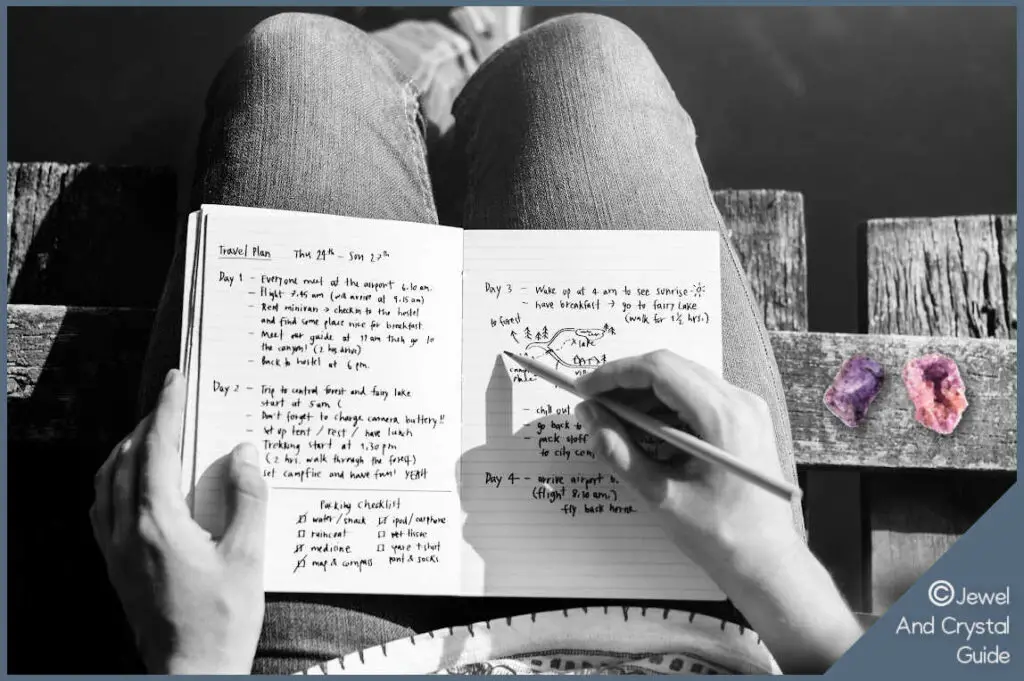 Travel Plan Thu 24th – Sun 27th
Day 1 – Everyone meet at the airport 6.10 am.
– Flight 7.45 am (will arrive at 9.15 am)
– Rent minivan → checkin to the hostel
and find some place nice for breakfast
– Meet our guide at 11 am then go to
the canyon! (2 hrs drive)
– Back to hostel at 6 pm.
Day 2 – Trip to central forest and fairy lake
start at 5 am
– Don't forget to charge camera battery!!
– Set up tent / rest / have lunch
– Trekking start at 1.30 pm
(2 hrs. walk through the forest)
– set campfire and have fun! YEAH
Packing Checklist
water/snack ipod/earphone
raincoat wet tissue
medicine spare t-shirt
map & compass pant & socks
Day 3 – Wake up at 4 am to see sunrise
– have breakfast → go to fairy lake
(walk for 1½ hrs.)
to forest
lake
place
– chill out
– go back to
– pack stuff
to city
Day 4 – arrive airport
(flight 8.30 am.)
fly back home
©Jewel
And Crystal
Guide